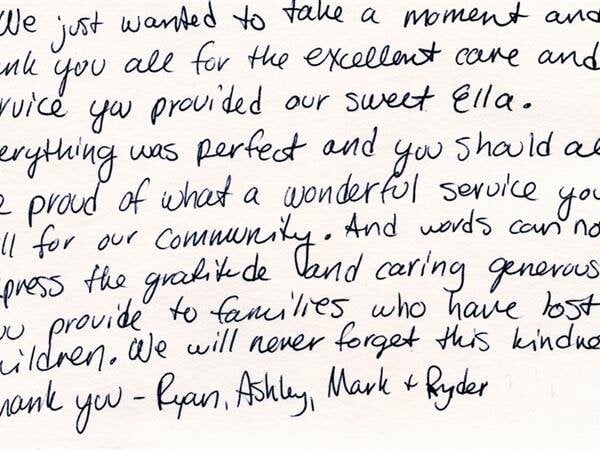 We just wanted to take a moment and
ank you all for the excellent care and
rvice you provided our sweet Ella.
erything was perfect and you should al
e proud of what a wonderful service you
ll for our community. And words can no
press the gratitude and caring generous
ou provide to families who have lost
ildren. We will never forget this kindne
hank you - Ryan, Ashley, Mark + Ryder